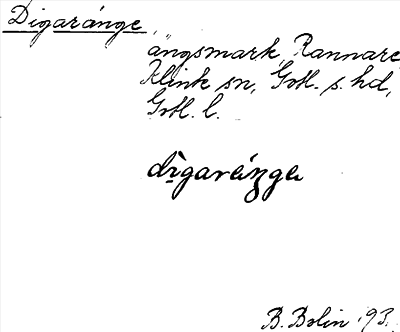 Digaränge,
ängsmark Rannare
Klink sn, Gotl. s. hd,
Gotl. l.
dìgaráŋgɐ
B. Bolin '93.